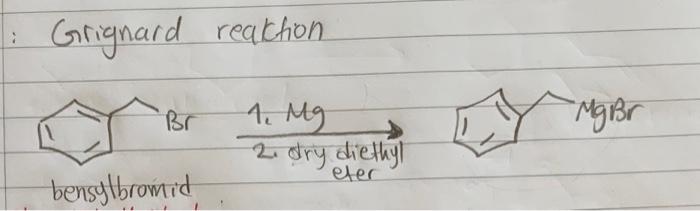 : Grignard reaktion
Br
1. Mg
2. dry diethyl
eter
MgBr
bensylbromid